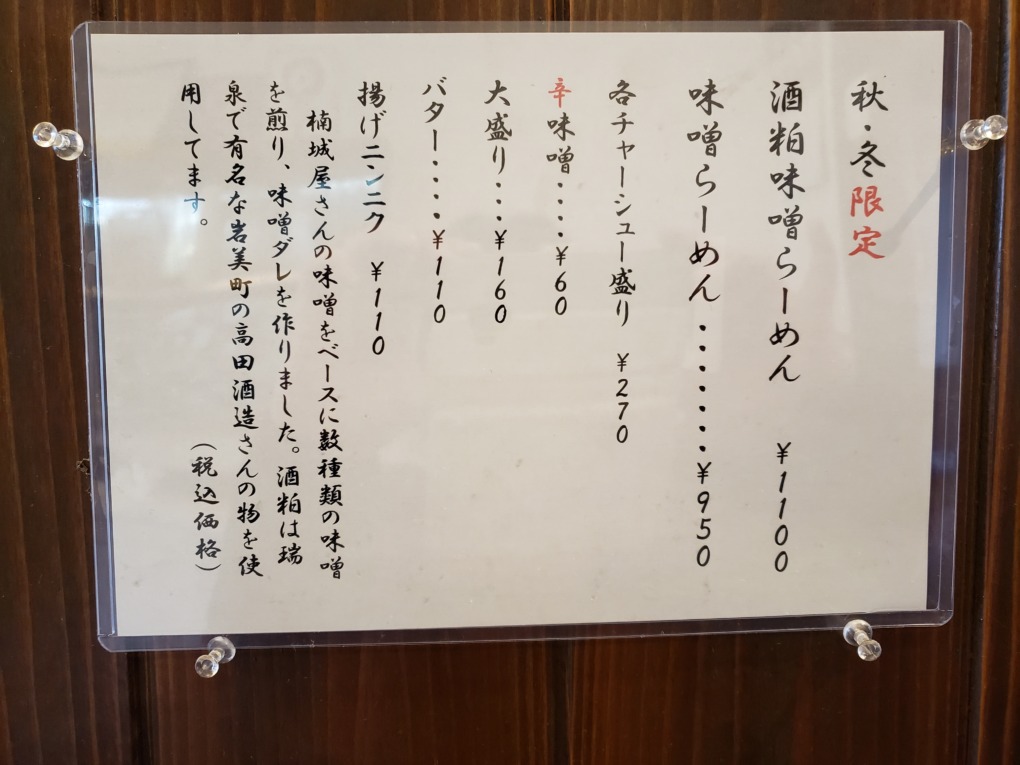 秋・冬限定
酒粕味噌らーめん ¥1100
味噌らーめん・・・・・・・¥950
各チャーシュー盛り ¥270
辛味噌・・・・¥60
大盛り・・・・¥160
バター・・・・¥110
揚げニンニク ¥110
楠城屋さんの味噌をベースに数種類の味噌
を煎り、味噌ダレを作りました。酒粕は瑞
泉で有名な岩美町の高田酒造さんの物を使
用してます。 (税込価格)